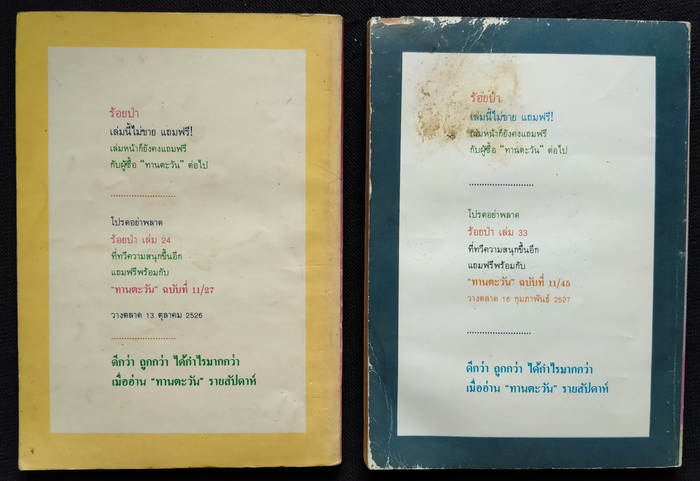 ร้อยป่า
เล่มนี้ไม่ขาย แถมฟรี!
เล่มหน้าก็ยังคงแถมฟรี
กับผู้ซื้อ "ทานตะวัน" ต่อไป
โปรดอย่าพลาด
ร้อยป่า เล่ม 24
ที่ทวีความสนุกขึ้นอีก
แถมฟรีพร้อมกับ
"ทานตะวัน" ฉบับที่ 11/27
วางตลาด 13 ตุลาคม 2526
ดีกว่า ถูกกว่า ได้กำไรมากกว่า
เมื่ออ่าน "ทานตะวัน" รายสัปดาห์
ร้อยป่า
เล่มนี้ไม่ขาย แถมฟรี!
เล่มหน้าก็ยังคงแถมฟรี
กับผู้ซื้อ "ทานตะวัน" ต่อไป
โปรดอย่าพลาด
ร้อยป่า เล่ม 33
ที่ทวีความสนุกขึ้นอีก
แถมฟรีพร้อมกับ
"ทานตะวัน" ฉบับที่ 11/45
วางตลาด 16 กุมภาพันธ์ 2527
ดีกว่า ถูกกว่า ได้กำไรมากกว่า
เมื่ออ่าน "ทานตะวัน" รายสัปดาห์